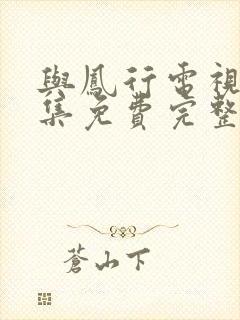 與鳳行電視
集免費完整
蒼山下